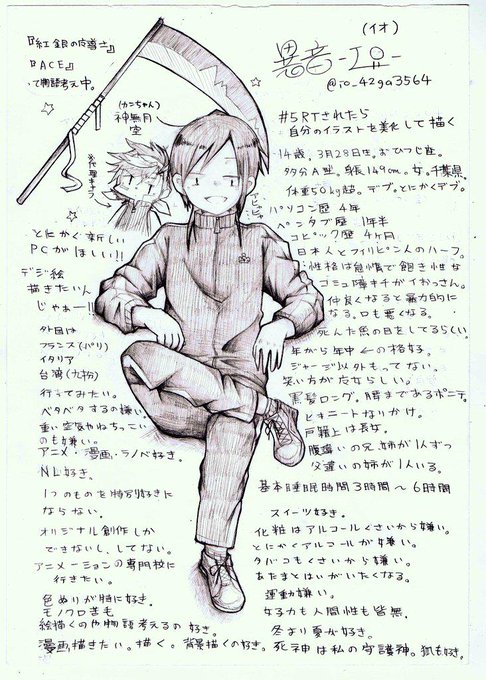 『紅銀の死導士』
『ACE』
って物語考え中。
(イオ)
異音 -IO-
@io_42ga3564
(カンちゃん)
神無月
空
#5RTされたら
自分のイラストを美化して描く
14歳、3月28日生。おひつじ座。
多分A型。身長149cm。女。千葉県。
体重50kg超。デブ。とにかくデブ。
パソコン歴 4年
ペンタブ歴 1年半
コピック歴 4ヶ月
日本人とフィリピン人のハーフ。
性格は怠惰で飽き性な
コミュ障キチがイおっさん。
仲良くなると暴力的に
なる。口も悪くなる。
死んだ魚の目をしてるらしい。
年がら年中 ←の格好。
ジャージ以外もってない。
笑い方が応ならしい。
黒髪ロング。腰まであるポニテ。
ヒキニートなりかけ。
戸籍上は長女。
腹違いの兄、姉が1人ずつ
父違いの姉が1人いる。
基本睡眠時間3時間〜6時間
スイーツ好き。
化粧はアルコールくさいから嫌い。
とにかくアルコールが嫌い。
タバコもくさいから嫌い。
あたまとはいがいたくなる。
運動嫌い。
女子力も人間性も皆無。
冬より夏が好き。
死神は私の守護神。狐も好き。
とにかく新しい
PCがほしい!!
デジ絵
描きたいん
じゃぁー!!
外国は
フランス(パリ)
イタリア
台湾(九份)
行ってみたい。
ベタベタするの嫌い。
重い空気やねちっこい
のも嫌い。
アニメ・漫画・ラノベ好き。
NL好き。
1つのものを特別好きに
ならない。
オリジナル創作しか
できないし、してない。
アニメーションの専門校に
行きたい。
色ぬりが特に好き。
モノクロ苦も
絵描くのや物語考えるの好き。
漫画描きたい。描く。背景描くの好き。